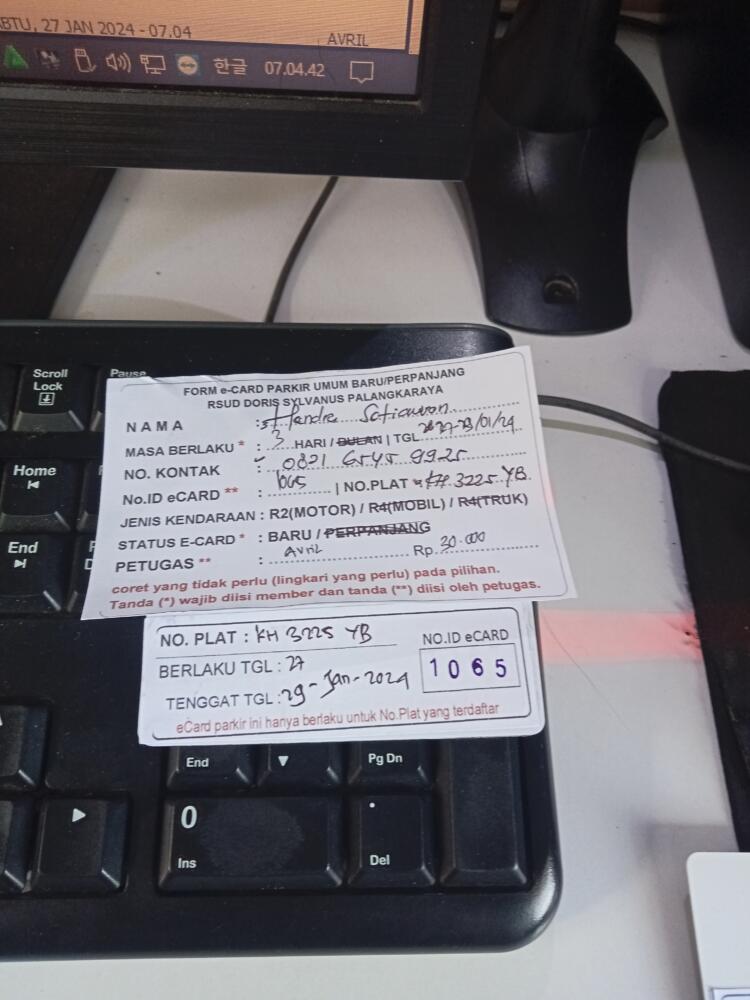 ABTU, 27 JAN 2024 - 07.04
AVRIL
한글 07.04.42
Scroll Lock
Pause
Home
End
FORM e-CARD PARKIR UMUM BARU/PERPANJANG
RSUD DORIS SYLVANUS PALANGKARAYA
NAMA : Handre Setiawan
MASA BERLAKU * : 3 HARI / BULAN | TGL 27-29/01/24
NO. KONTAK : 0821 6545 9925
No.ID eCARD ** : 1065 | NO.PLAT KH 3225 YB
JENIS KENDARAAN : R2(MOTOR) / R4(MOBIL) / R4(TRUK)
STATUS E-CARD * : BARU / PERPANJANG
PETUGAS ** : Avril Rp. 30.000
coret yang tidak perlu (lingkari yang perlu) pada pilihan.
Tanda (*) wajib diisi member dan tanda (**) diisi oleh petugas.
NO. PLAT : KH 3225 YB
NO.ID eCARD
BERLAKU TGL : 27
1065
TENGGAT TGL : 29-Jan-2024
eCard parkir ini hanya berlaku untuk No.Plat yang terdaftar
End
Pg Dn
0
Ins
.
Del